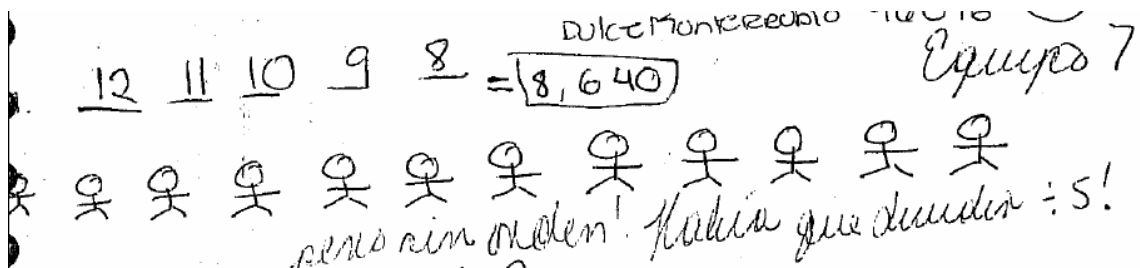 Dulce Monterrubio
Equipo 7
12 11 10 9 8 = 8,640
pero sin orden! Había que dividir ÷ 5!